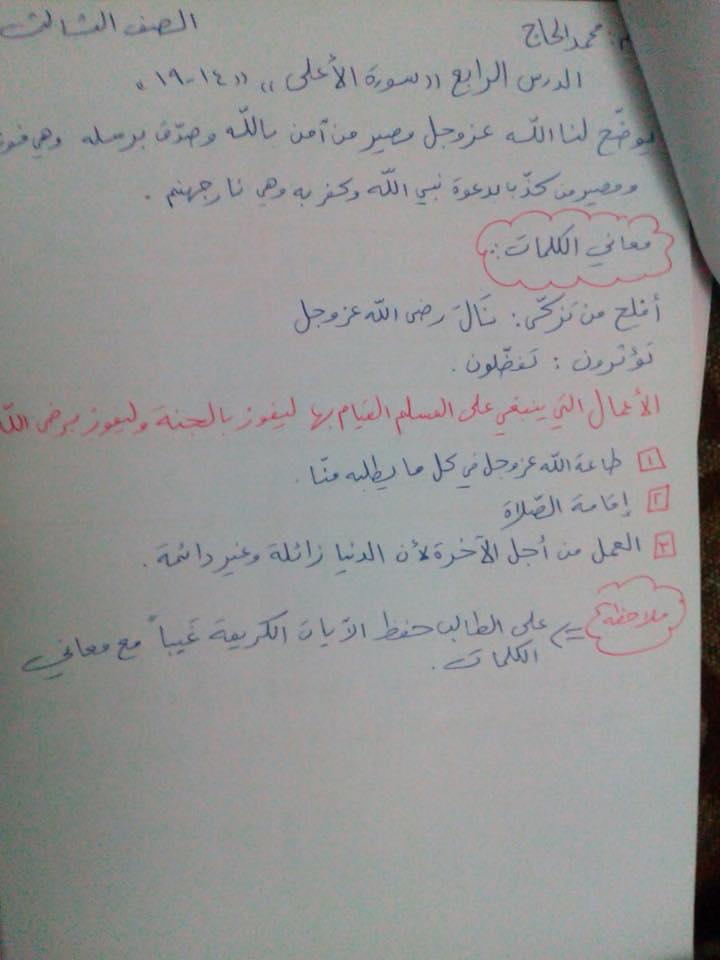 م: محمد الحاج الصف الثالث
الدرس الرابع "سورة الأعلى" "١٤-١٩"
يوضّح لنا الله عزوجل مصير من آمن بالله وصدّق برسله وهي
ومصير من كذّب بالدعوة نبي الله وكفر به وهي نار جهنم.
معاني الكلمات:
أفلح من تزكّى: نَالَ رضى الله عزوجل
تؤثرون: تفضّلون.
الأعمال التي ينبغي على المسلم القيام بها ليفوز بالجنة وليفوز برضى الله
١ طاعة الله عزوجل في كل ما يطلبه منّا.
٢ إقامة الصّلاة
٣ العمل من أجل الآخرة لأن الدنيا زائلة وغير دائمة.
ملاحظة => على الطالب حفظ الآيات الكريمة غَيباً مع معاني
الكلمات.